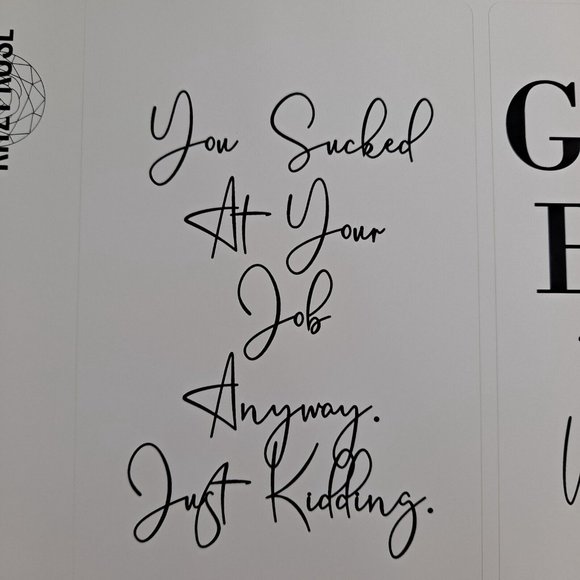 You Sucked
At Your
Job
Anyway.
Just Kidding.
G